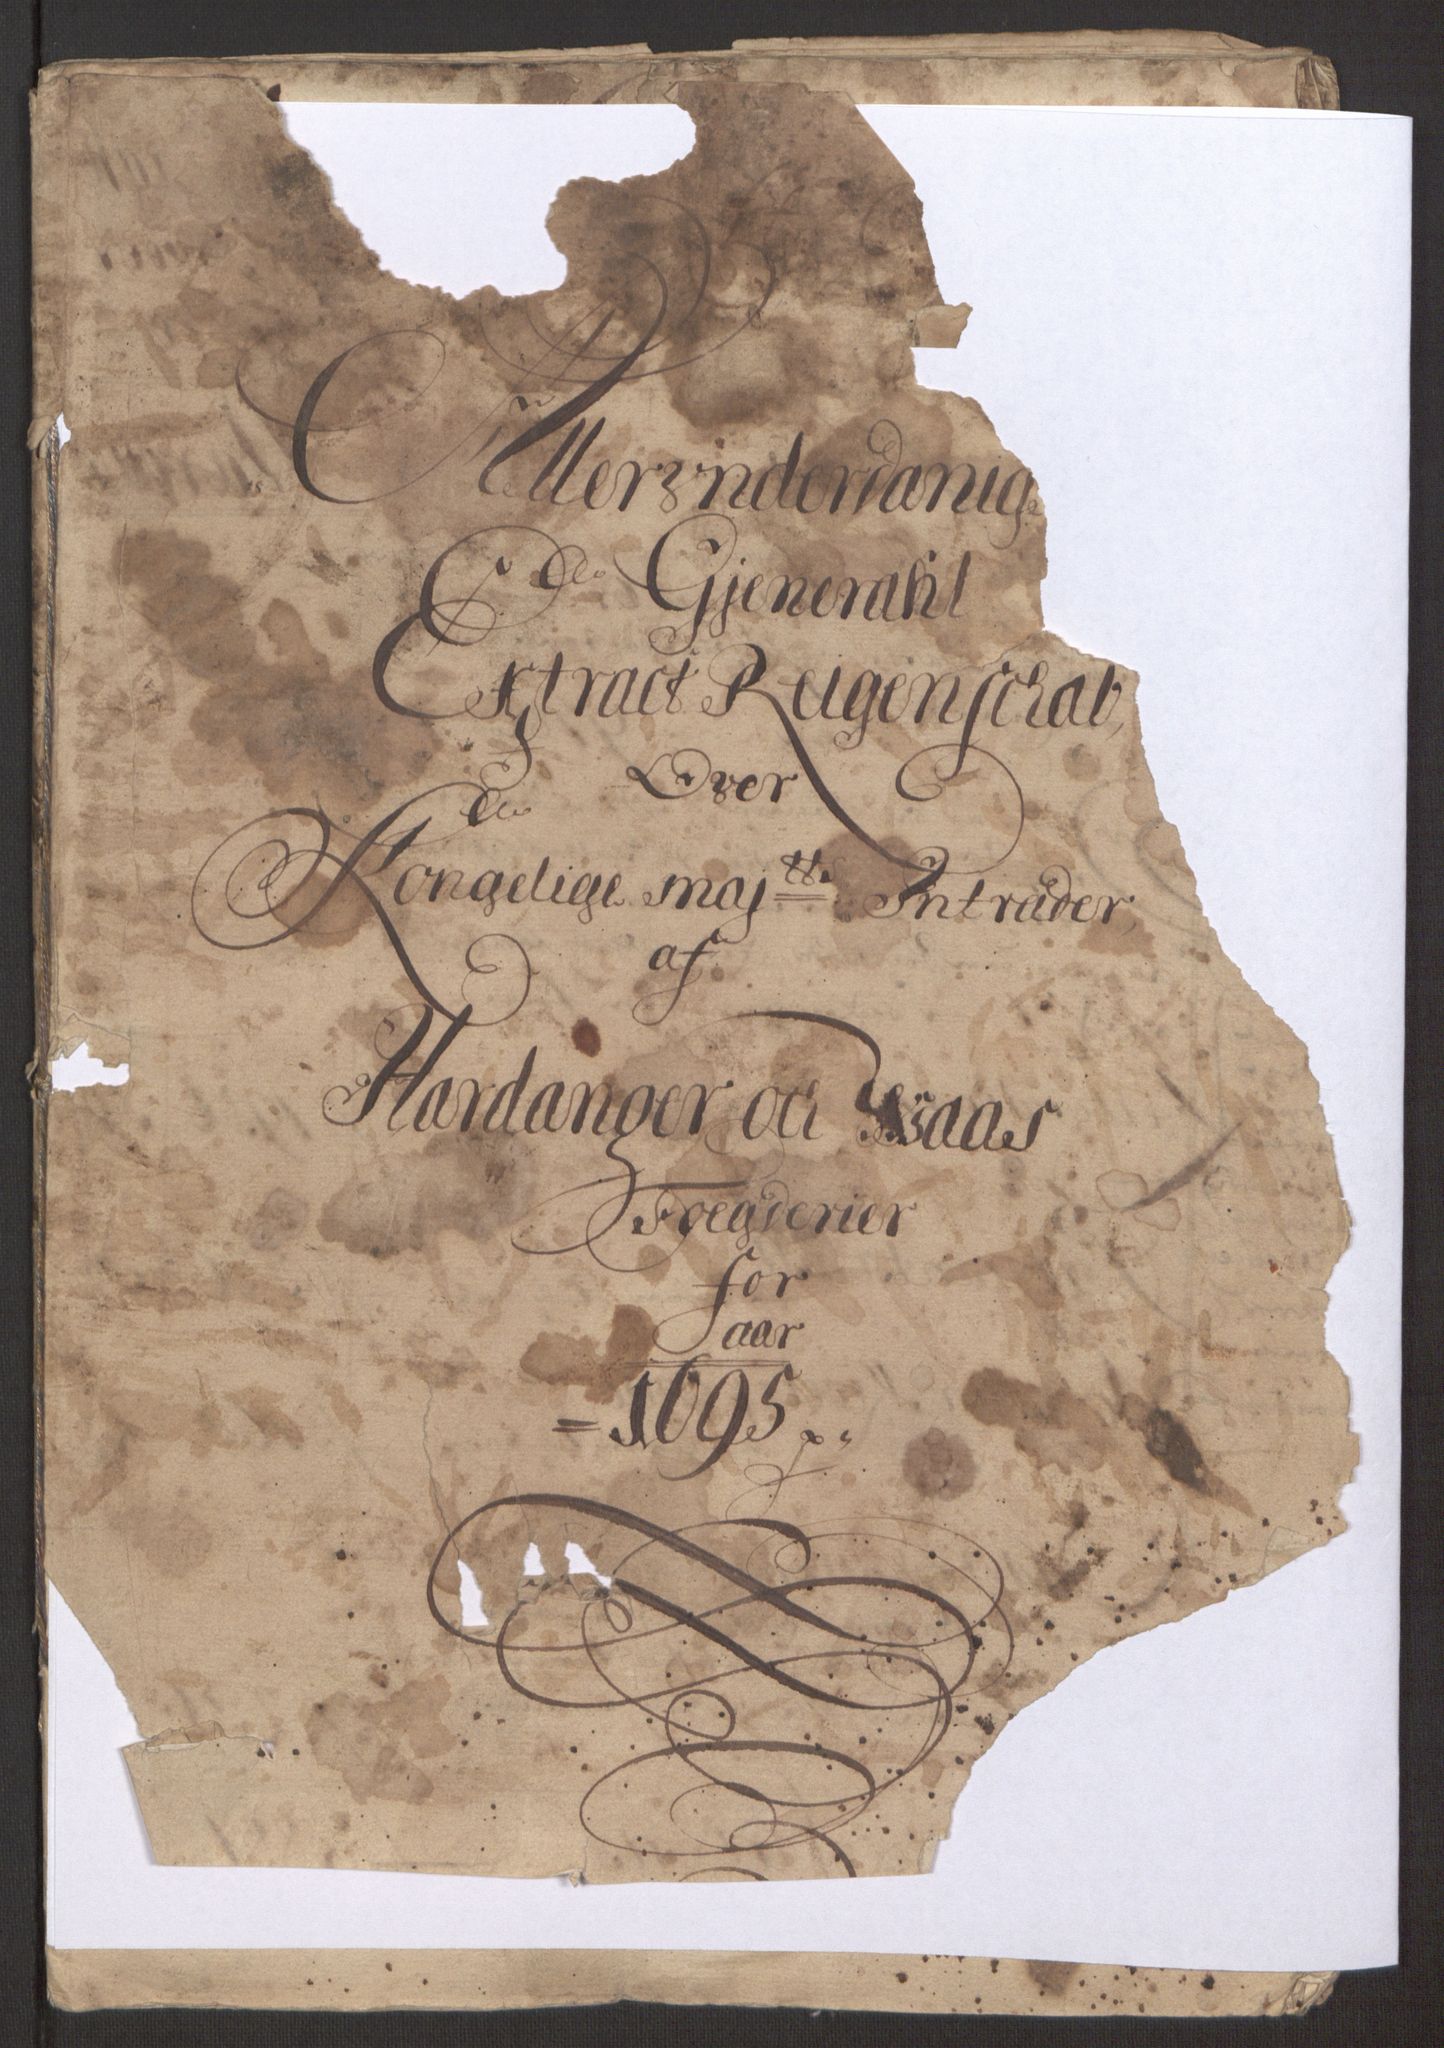 Allerunderdanig
Gjenerahl
Extract Reigenschab,
Over
Kongelige maj:tts Intrader,
af
Hardanger och Waas
Foegderier
for
aar
= 1695